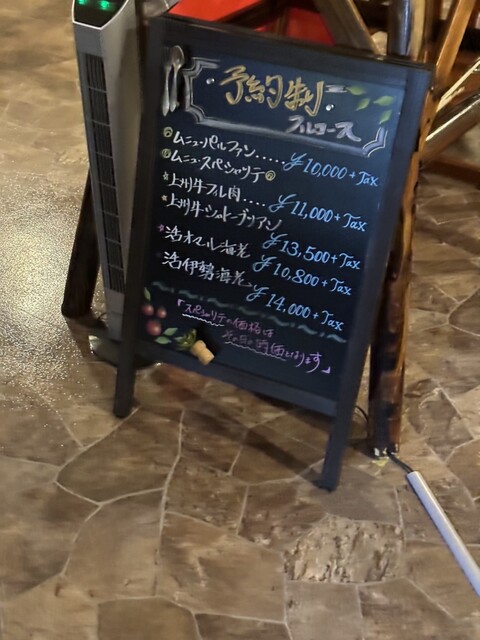 予約制
フルコース
ムニュ・パルファン.....¥10,000+Tax
ムニュ・スペシャリテ
上州牛フル肉....¥11,000+Tax
上州牛シャトーブリアン
¥13,500+Tax
活オマール海老 ¥10,800+Tax
活伊勢海老 ¥14,000+Tax
「スペシャリテの価格は
その日の時価となります」